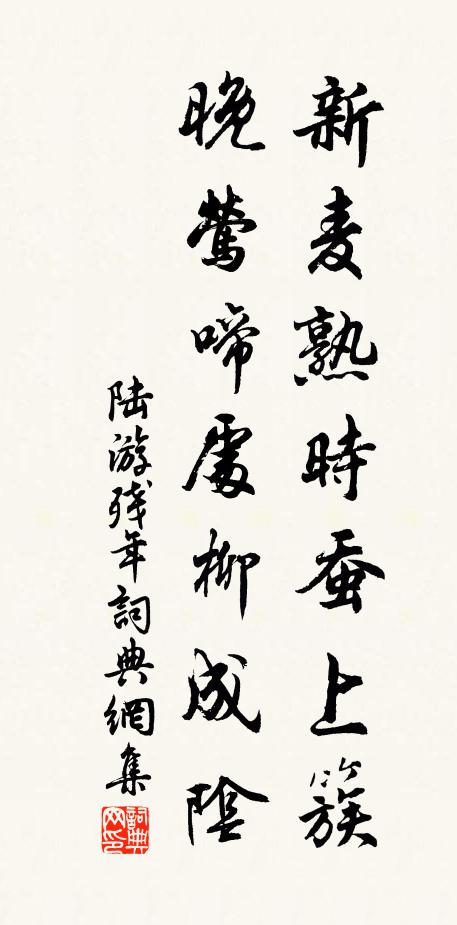 新麦熟時蚕上簇
晚鶯啼處柳成陰
陆游残年詞典網集
詞典网印